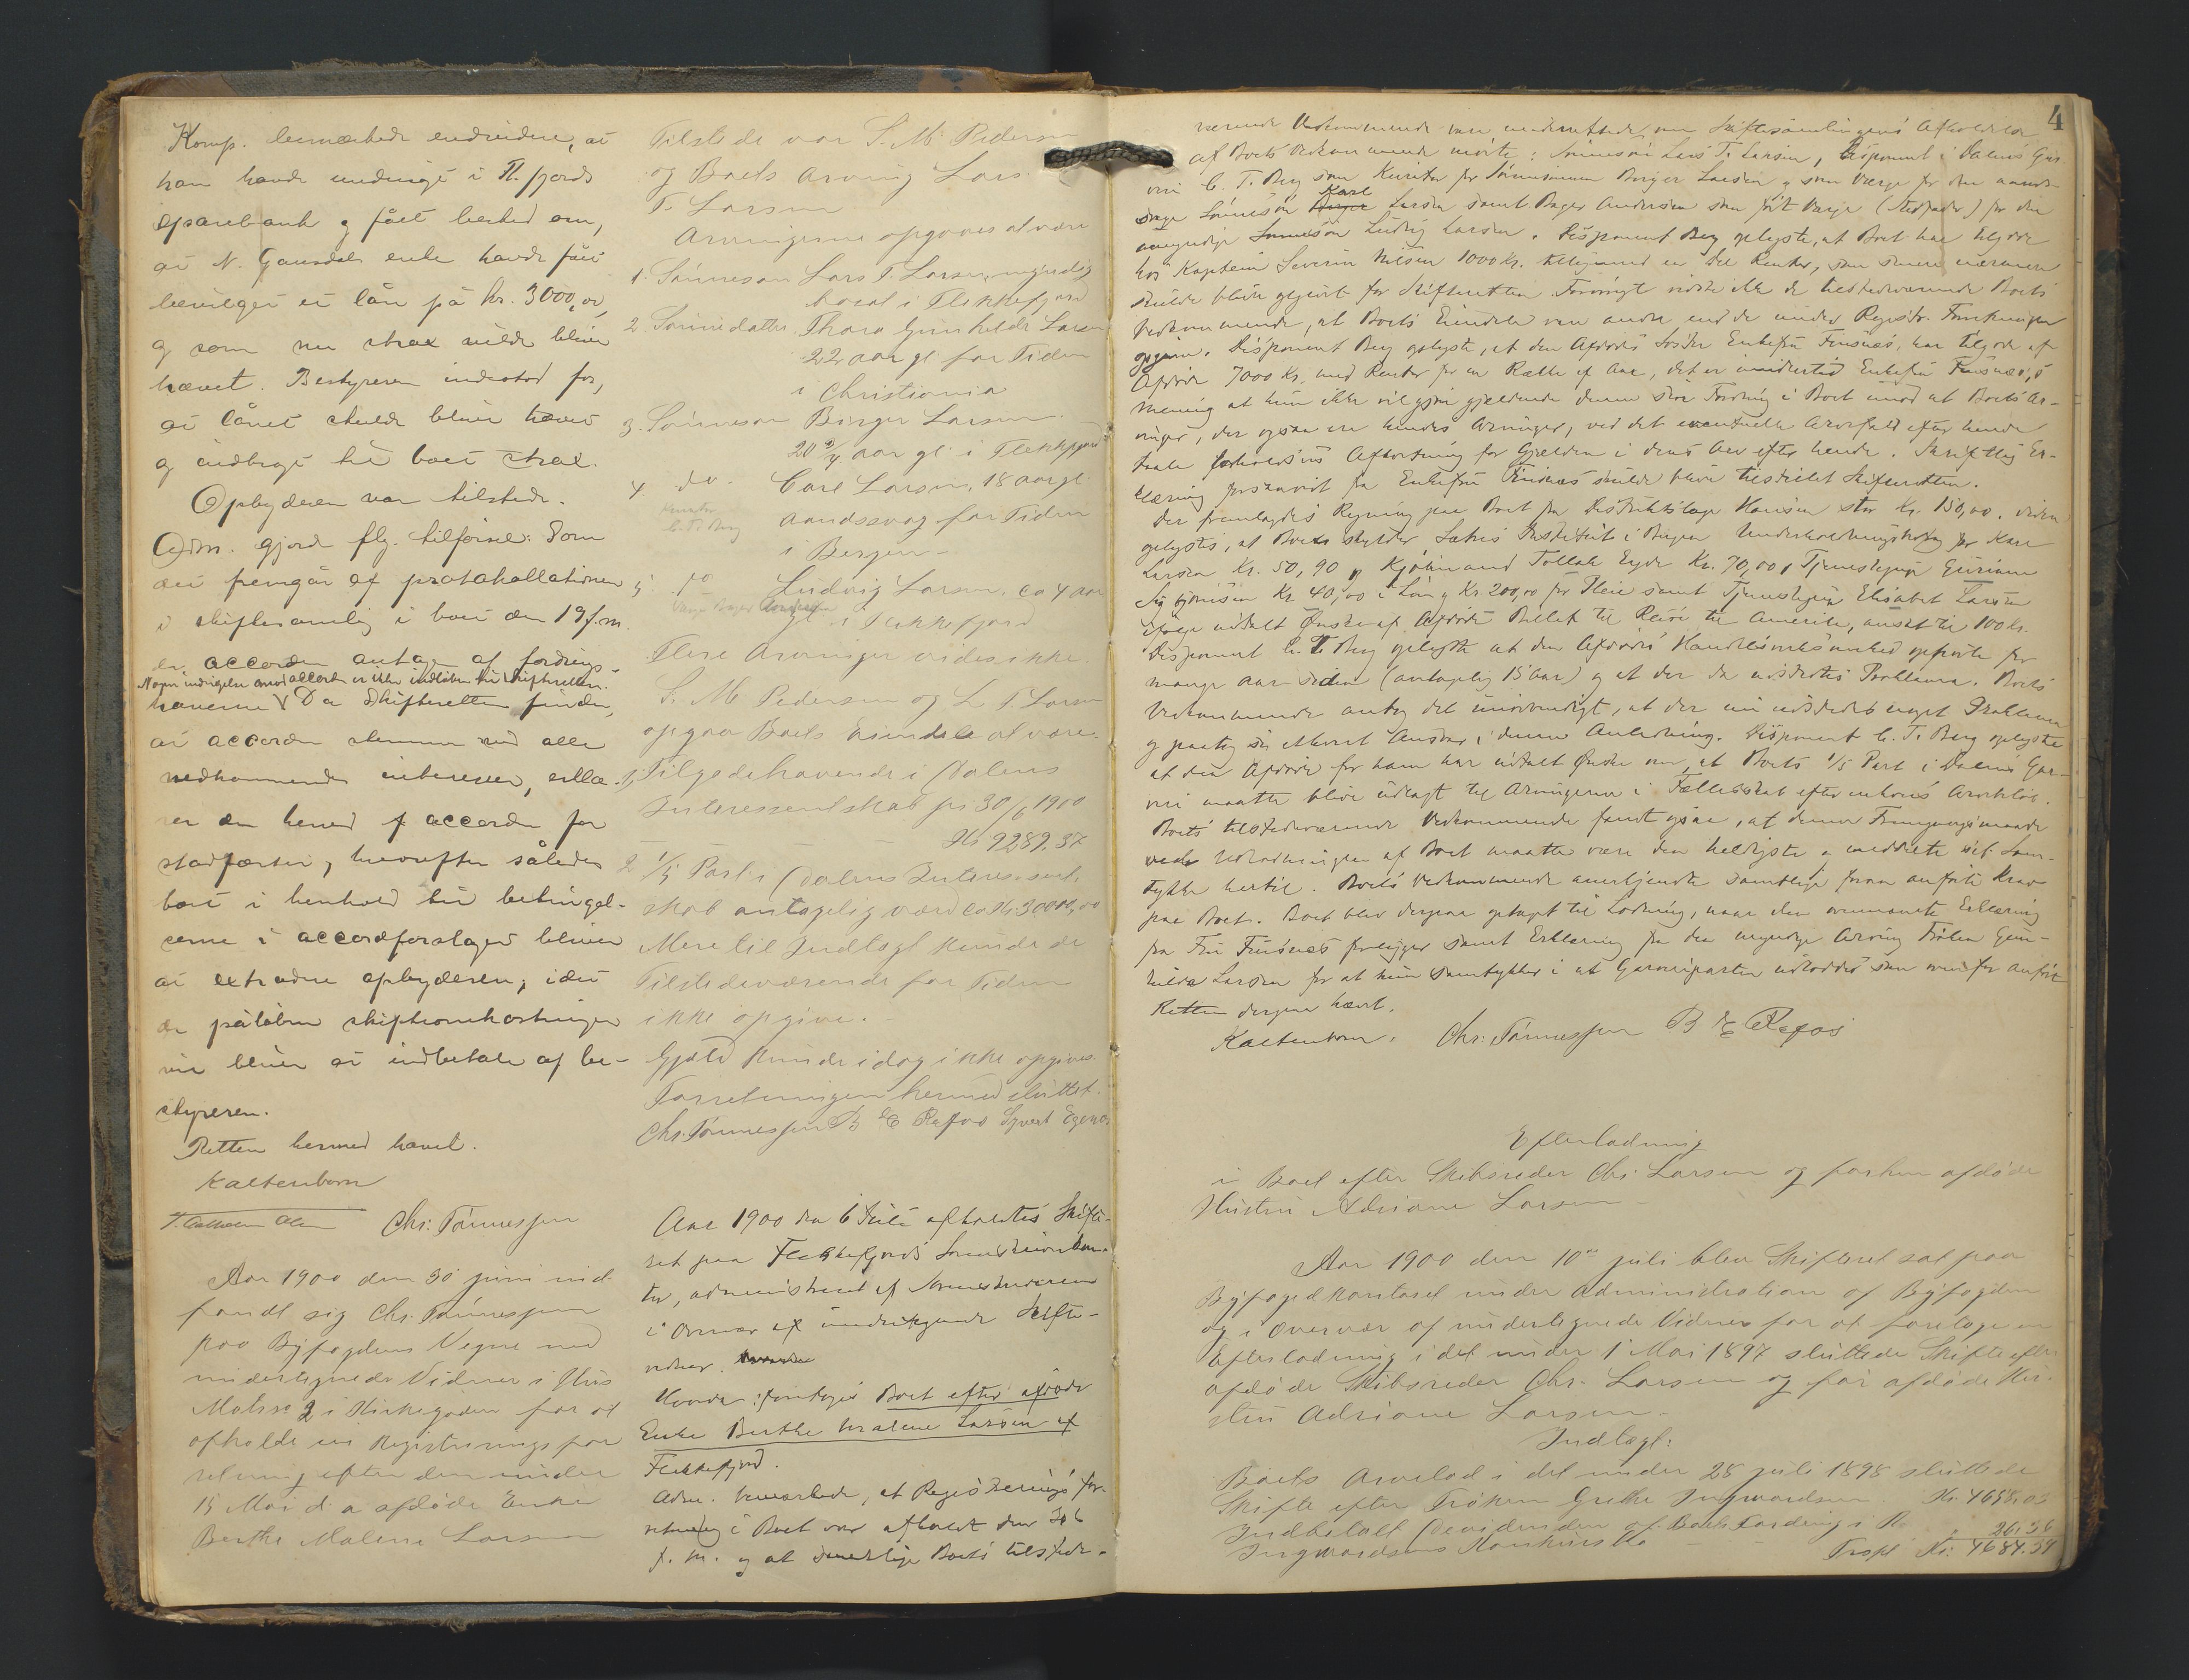 Komp. bemærkede endvidere, at
han havde undersøgt i Fl.fjords
sparebank og fået besked om,
at N. Gausdals enke havde fået
bevilget et lån på kr. 3000,00,
og som nu strax vilde blive
hævet. Bestyreren indestod for,
at lånet skulde blive hævet
og indbragt til boet strax.
Opbyderen var tilstede.
Adm. gjorde flg. tilførsel: Som
det fremgår af protokollationen
i skiftesamling i boet den 19 f.m.
er accorden antaget af fordrings-
Nogen indsigelse mod accorden er ikke indløben til skifteretten.
haverne V Da Skifteretten finder,
at accorden stemmer med alle
vedkommendes interesser, erklæ-
rer den herved accorden for
stadfæstet, hvorefter således
boet i henhold til betingel-
serne i accordforslaget bliver
at extradere opbyderen, idet
de påløbne skifteomkostninger
vil blive at indbetale af be-
styreren.
Retten hermed hævet.
Kaltenborn
Chr. Tønnessen
Aar 1900 den 30 juni ind
fandt sig Chr. Tønnessen
paa Byfogdens Vegne med
undertegnede Vidner i Hus
Matr. 2 i Kirkegaden for at
afholde en Registreringsfor
retning efter den under
15 Mai d. a afdøde Enke
Berthe Malene Larsen
Tilstede var S. M. Pedersen
og Boets Arving Lars
T. Larsen
Arvingerne opgaves at være
1. Sønnesøn Lars T. Larsen, myndig
bosat i Flekkefjord
2. Sønnedatter Thora Gunhilde Larsen
22 aar gl. for Tiden
i Christiania
3. Sønnesøn Birger Larsen
20 aar gl. i Flekkefjord
4 do. Carl Larsen, 18 aar gl.
Kurator
C. T. Berg
aandssvag for Tiden
i Bergen
5 do Ludvig Larsen, ca 4 aar
gl. i Flekkefjord
Flere Arvinger vides ikke.
S. M. Pedersen og L. T. Larsen
opgav Boets Eiendele at være:
1, Tilgodehavende i Dalens
Interessentskab pr 30/6 1900
Kr. 9289.37
2 1/5 Part i Dalens Interessent-
skab antagelig værd ca Kr. 30000,00
Mere til Indtægt kunde de
Tilstedeværende for Tiden
ikke opgive.
Gjæld kunde idag ikke opgives.
Forretningen hermed sluttet.
Chr. Tønnessen B E Refos Syvert Egenes
Aar 1900 den 6 Juli afholdtes Skifte-
ret paa Flekkefjords Sorenskriverkon-
tor, administreret af Sorenskriveren
i Overvær af undertegnede Skifte-
vidner.
Hvorda: foretoges Boet efter afdøde
Enke Berthe Malene Larsen af
Flekkefjord.
Adm. bemærkede, at Registrerings for-
retning i Boet var afholdt den 30 6
f. m. og at samtlige Boets tilstede-
4
værende Vedkommende vare underrettede om Skiftesamlingens Afholdelse
Af Boets Vedkommende mødte: Sønnesøn Lars T. Larsen, Disponent i Dalens Gar
veri C. T. Berg som Kurator for Sønnesønnen Birger Larsen og som Værge for den aands-
svage Sønnesøn Birger Karl Larsen samt Bager Andersen som født Værge (Stedfader) for den
umyndige Sønnesøn Ludvig Larsen. Disponent Berg oplyste, at Boet har tilgode
hos Kaptein Severin Nilsen 1000 Kr. tilligemed en Del Renter, som senere nærmere
skulde blive opgivet for Skifteretten. Forøvrigt vidste ikke de tilstedeværende Boets
Vedkommende, at Boets Eiendele var andre end de under Registr. Forretningen
opgivne. Disponent Berg oplyste, at den Afdødes Søster Enkefru Fusnæs, har tilgode af
Afdøde 7000 Kr. med Renter for en Række af Aar, det er imidlertid Enkefru Fusnæs's
Mening at hun ikke vil gjøre gjældende denne sin Fordring i Boet imod at Boets Ar-
vinger, der ogsaa ere hendes Arvinger, ved det eventuelle Arvefald efter hende
taale forholdsvis Afkortning for Gjælden i dens Arv efter hende. Skriftlig Er-
klæring forsaavidt fra Enkefru Fusnæs skulde blive tilstillet Skifteretten.
Der fremlagdes Regning paa Boet fra Distriktslæge Hansen stor Kr. 150,00. Videre
oplystes, at Boet skylder Sætres Institut i Bergen Underholdningsbidrag for Karl
Larsen Kr. 50,90 og Kjøbmand Tollak Eyde Kr. 70,00, Tjenestepige Guriane
Sigbjørnsen Kr 40,00 i Løn og Kr 200,00 for Pleie samt Tjenestepige Elisabet Larsen
ifølge udtalt Ønske af Afdøde Billet til Reise til Amerika, ansat til 100 Kr.
Disponent C. T. Berg oplyste at den Afdødes Handelsvirksomhed ophørte for
mange Aar siden (antagelig 15 Aar) og at der da udstedtes Proklama. Boets
Vedkommende antog det unødvendigt, at der nu udstedes noget Proklama
og paatog sig ethvert Ansvar i denne Anledning. Disponent C. T. Berg oplyste
at den Afdøde for ham har udtalt Ønske om, at Boets 1/5 Part i Dalens Gar-
veri maatte blive udlagt til Arvingerne i Fællesskab efter enhvers Arvelod.
Boets tilstedeværende Vedkommende fandt ogsaa, at denne Fremgangsmaade
ved Udlodningen af Boet maatte være den heldigste og meddelte sit Sam-
tykke hertil. Boets Vedkommende anerkjendte samtlige foran anførte Krav
paa Boet. Boet blev derpaa optaget til Lodning, naar den ovennævnte Erklæring
fra Fru Fusnæs foreligger samt Erklæring fra den myndige Arving Frøken Gun-
hilde Larsen for at hun samtykker i at Garveriparten udloddes som ovenfor anført
Retten derpaa hævet.
Kaltenborn. Chr. Tønnessen B E Refos
Efterlodning
i Boet efter Skibsreder Chr. Larsen og forhen afdøde
Hustru Adriane Larsen
Aar 1900 den 10de juli blev Skifteret sat paa
Byfogedkontoret under Administration af Byfogden
og i Overvær af undertegnede Vidner for at foretage en
Efterlodning i det under 1 Mai 1897 sluttede Skifte efter
afdøde Skibsreder Chr. Larsen og før afdøde Hu-
stru Adriane Larsen.
Indtægt:
Boets Arvelod i det under 28 juli 1898 sluttede
Skifte efter Frøken Grethe Ingwardsen Kr. 4658,03
Indbetalt Dividenden af Boets Fordring i
Ingwardsens Konkursbo 26.36
Trspt Kr: 4684.39